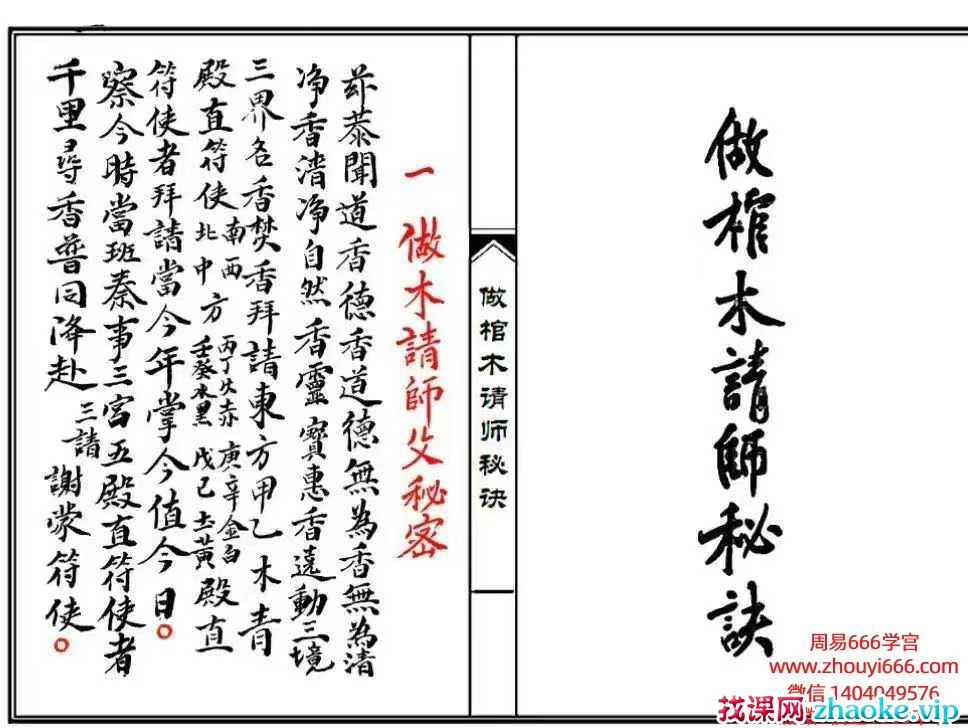 做棺木請師秘訣
做棺木请师秘诀
一 做木請師父秘密
恭聞道香德香道德無為香無為清
净香清净自然香靈寶惠香遶動三境
三界名香焚香拜請東方甲乙木青
殿直符使南西北中方丙丁火赤庚辛金白壬癸水黑戊己土黄殿直
符使者拜請當今年掌今值今日。
察今時當班奏事三宫五殿直符使者
千里尋香普同降赴三請謝蒙符使。
周易666学宫
www.zhouyi666.com
微信 1404049576
找课网zhaoke.vip